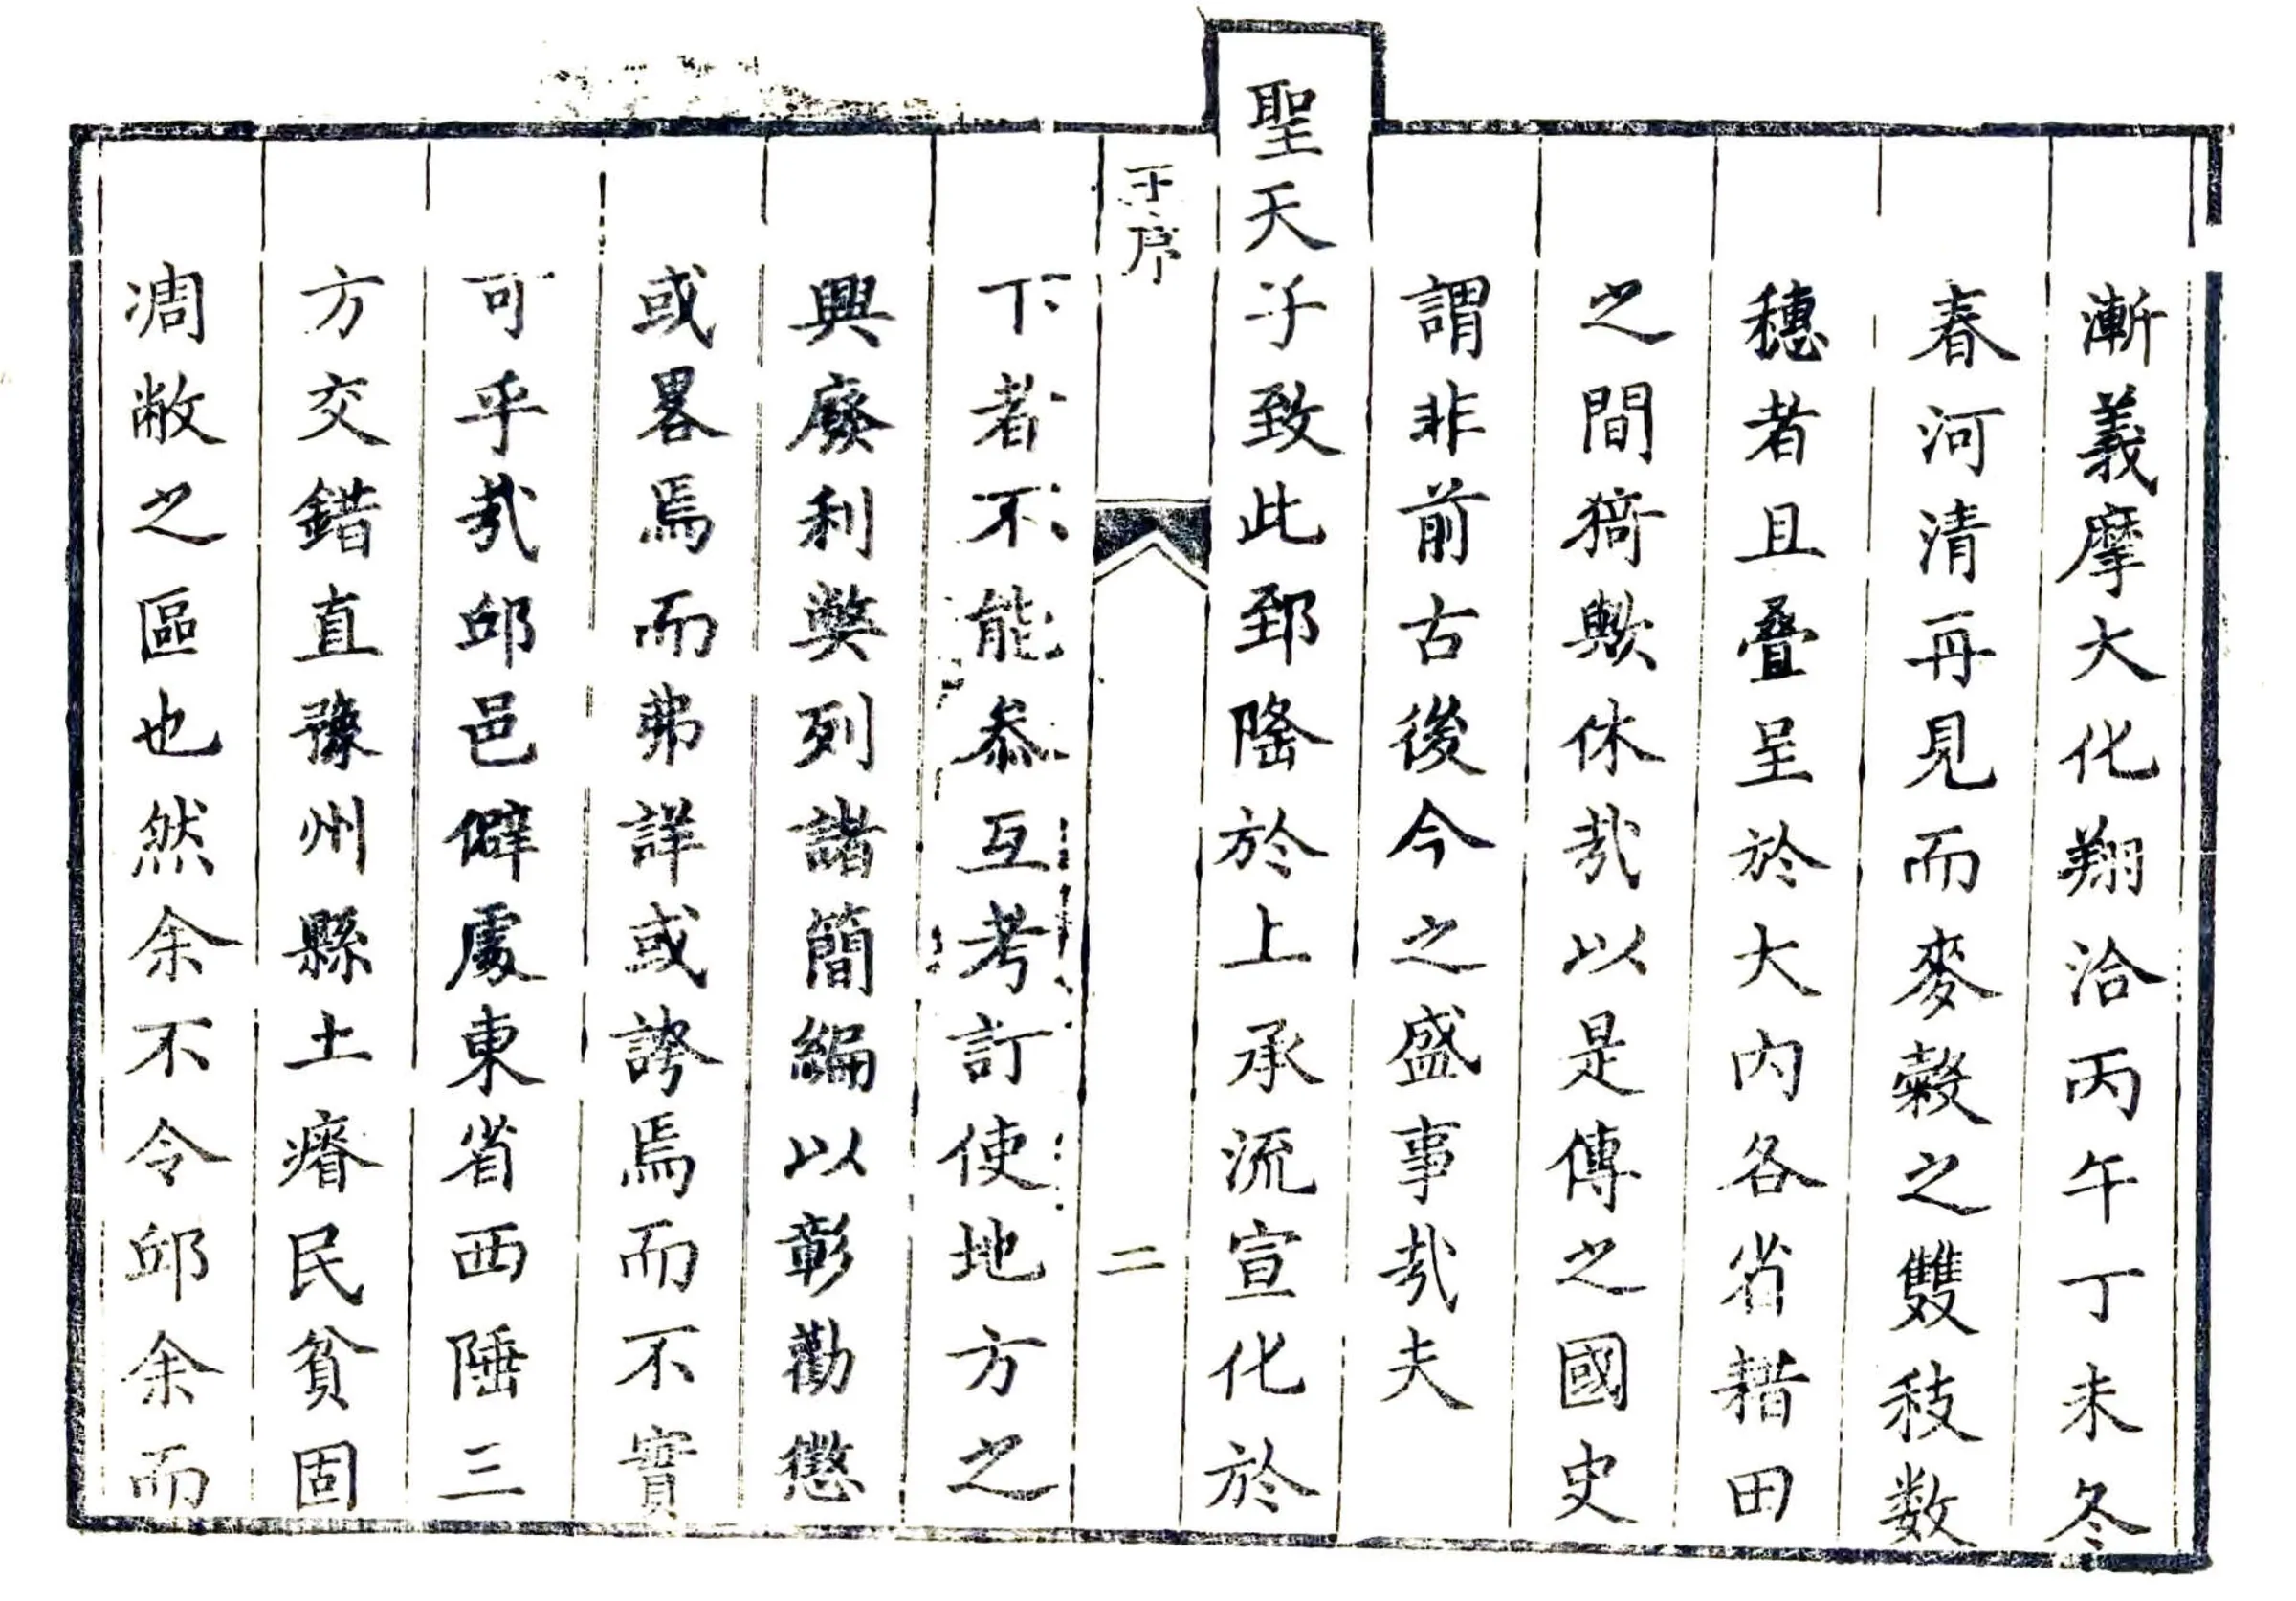 漸義摩大化翔洽丙午丁未冬
春河清再見而麥穀之雙秓数
穗者且叠呈於大内各省耤田
之間猗歟休㢤以是傳之國史
謂非前古後今之盛事㢤夫
聖天子致此郅隆於上承流宣化於
序
二
下者不能叅互考訂使地方之
興廢利獘列諸簡編以彰勸懲
或畧焉而弗詳或誇焉而不實
可乎㢤邱邑僻處東省西陲三
方交錯直豫州縣土瘠民貧固
凋敝之區也然余不令邱余而